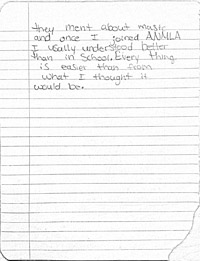 they ment about music
and once I joined ANMLA
I usally understood better
than in school. Every thing
is easier than from
what I thought it
would be.